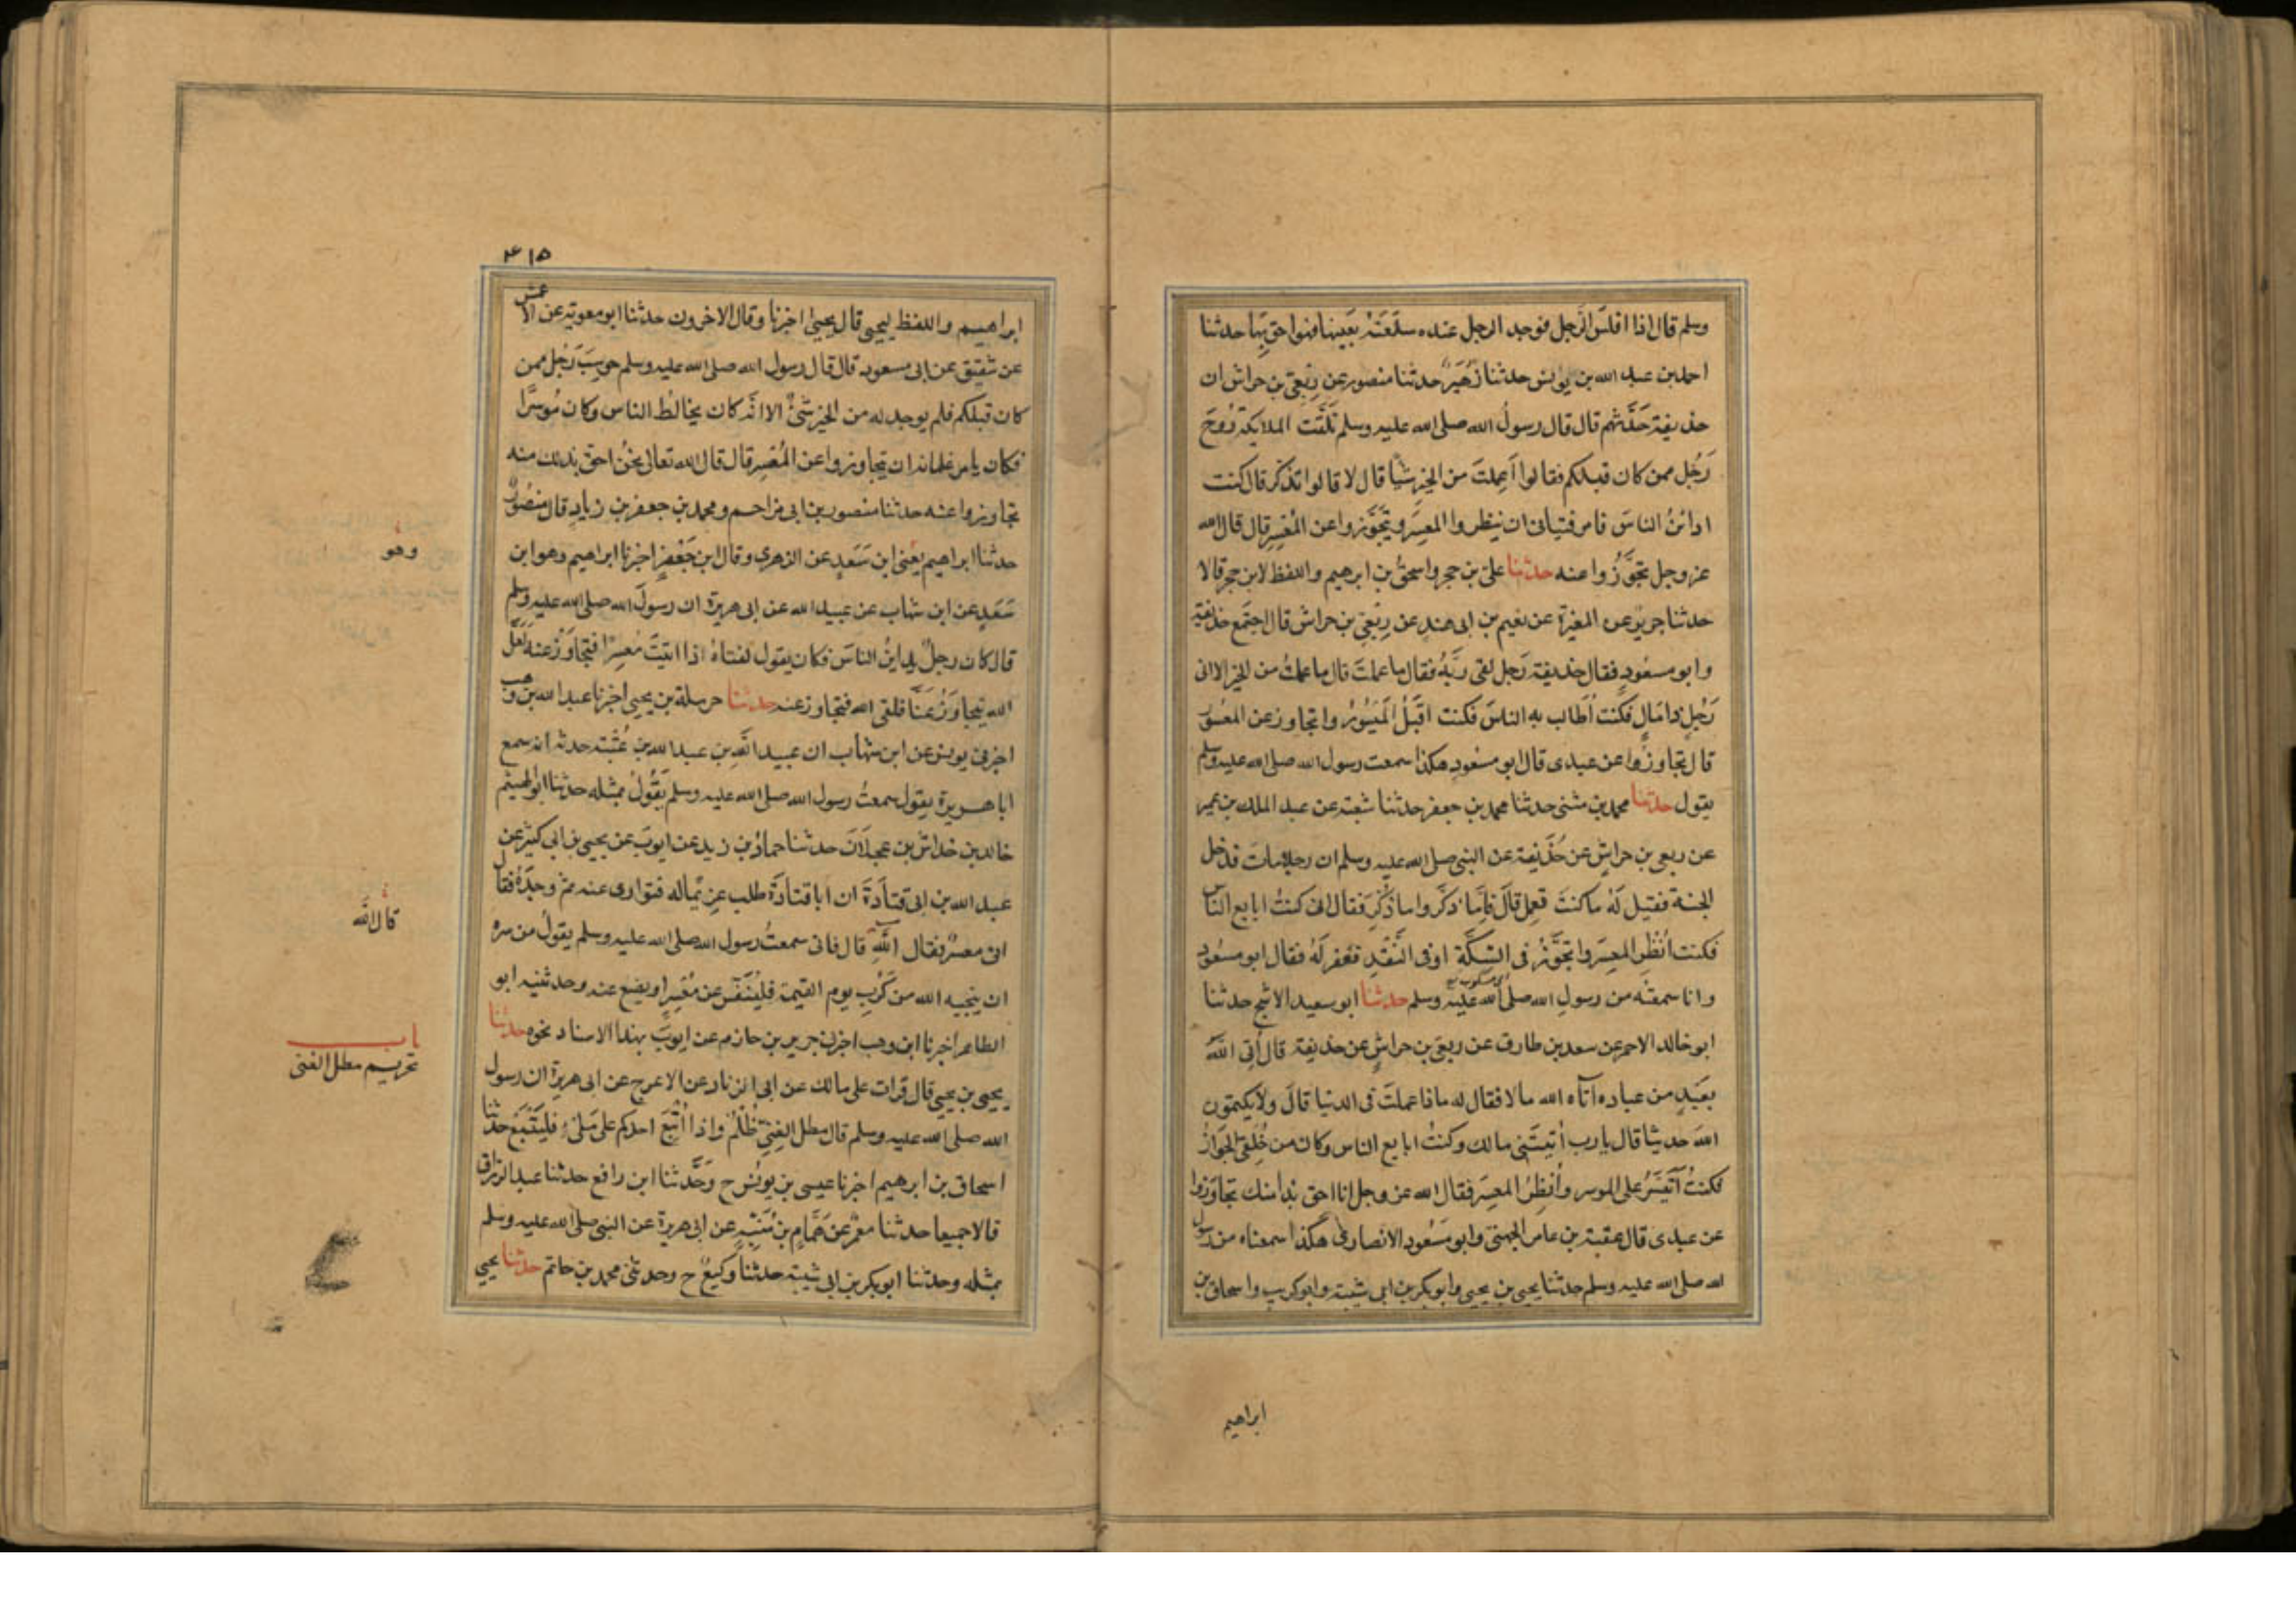 وسلم قال اذا افلس الرجل فوجد الرجل عنده سلعته بعينها فهوا حق بها حدثنا
احمد بن عبد الله بن يونس حدثنا زهير حدثنا منصور عن ربعي بن حراش ان
حذيفة حدثهم قال قال رسول الله صلى الله عليه وسلم تلقت الملايكة روح
رجل ممن كان قبلكم فقالوا اعملت من الخير شيا قال لا قالوا تذكر قال كنت
اداين الناس فامر فتياني ان ينظروا المعسر ويتجوزوا عن المعسر قال قال الله
عز وجل تجوزوا عنه حدثنا علي بن حجر واسحق بن ابرهيم واللفظ لابن حجر قالا
حدثنا جرير عن المغيرة عن نعيم بن ابي هند عن ربعي بن حراش قال اجتمع حذيفة
وابو مسعود فقال حذيفة رجل لقي ربه فقال ما عملت قال ما عملت من الخير الا اني
رجل ذا مال فكنت اطالب به الناس فكنت اقبل الميسور واتجاوز عن المعسور
قال تجاوزوا عن عبدى قال ابو مسعود هكذا سمعت رسول الله صلى الله عليه وسلم
يقول حدثنا محمد بن مثنى حدثنا محمد بن جعفر حدثنا شعبة عن عبد الملك بن عمير
عن ربعي بن حراش عن حذيفة عن النبي صلى الله عليه وسلم ان رجلا مات فدخل
الجنة فقيل له ما كنت تعمل قال فاما ذكر واما ذكر فقال اني كنت ابايع الناس
فكنت انظر المعسر واتجوز في السكة او في النقد فغفر له فقال ابو مسعود
وانا سمعته من رسول الله صلى الله عليه وسلم حدثنا ابو سعيد الاشج حدثنا
ابو خالد الاحمر عن سعد بن طارق عن ربعي بن حراش عن حذيفة قال أتي الله
بعبد من عباده آتاه الله مالا فقال له ماذا عملت في الدنيا قال ولا يكتمون
الله حديثا قال يا رب أتيتني مالك وكنت ابايع الناس وكان من خلقي الجواز
فكنت أتيسر على الموسر وأنظر المعسر فقال الله عز وجل انا احق بذا منك تجاوزوا
عن عبدى قال عقبة بن عامر الجهني وابو مسعود الانصاري هكذا سمعناه من رسول
الله صلى الله عليه وسلم حدثنا يحيى بن يحيى وابو بكر بن ابي شيبة وابو كريب واسحاق بن
ابراهيم
٤١٥
ابراهيم واللفظ ليحيى قال يحيى اخبرنا وقال الاخرون حدثنا ابو معوية عن الاعمش
عن شقيق عن ابي مسعود قال قال رسول الله صلى الله عليه وسلم حوسب رجل ممن
كان قبلكم فلم يوجد له من الخير شئ الا انه كان يخالط الناس وكان موسرا
فكان يامر غلمانه ان يتجاوزوا عن المعسر قال قال الله تعالى نحن احق بذلك منه
تجاوزوا عنه حدثنا منصور بن ابي مزاحم ومحمد بن جعفر بن زياد قال منصور
حدثنا ابراهيم يعني ابن سعد عن الزهرى وقال ابن جعفر اخبرنا ابراهيم وهو ابن
سعد عن ابن شهاب عن عبيد الله عن ابي هريرة ان رسول الله صلى الله عليه وسلم
قال كان رجل يداين الناس فكان يقول لفتاه اذا اتيت معسرا فتجاوز عنه لعل
الله يتجاوز عنا فلقي الله فتجاوز عنه حدثنا حرملة بن يحيى اخبرنا عبد الله بن وهب
اخبرني يونس عن ابن شهاب ان عبيد الله بن عبد الله بن عتبة حدثه انه سمع
ابا هريرة يقول سمعت رسول الله صلى الله عليه وسلم يقول بمثله حدثنا ابو الهيثم
خالد بن خداش بن عجلان حدثنا حماد بن زيد عن ايوب عن يحيى بن ابي كثير عن
عبد الله بن ابي قتادة ان ابا قتادة طلب غريما له فتوارى عنه ثم وجده فقال
اني معسر فقال الله قال فاني سمعت رسول الله صلى الله عليه وسلم يقول من سره
ان ينجيه الله من كرب يوم القيمة فلينفس عن معسر او يضع عنه وحدثنيه ابو
الطاهر اخبرنا ابن وهب اخبرني جرير بن حازم عن ايوب بهذا الاسناد نحوه حدثنا
يحيى بن يحيى قال قرات على مالك عن ابي الزناد عن الاعرج عن ابي هريرة ان رسول
الله صلى الله عليه وسلم قال مطل الغني ظلم واذا أتبع احدكم على ملئ فليتبع حدثنا
اسحاق بن ابرهيم اخبرنا عيسى بن يونس ح وحدثنا ابن رافع حدثنا عبد الرزاق
قالا جميعا حدثنا معمر عن همام بن منبه عن ابي هريرة عن النبي صلى الله عليه وسلم
بمثله وحدثنا ابو بكر بن ابي شيبة حدثنا وكيع ح وحدثني محمد بن حاتم حدثنا يحيى
وهو
قال الله
باب
تحريم مطل الغنى